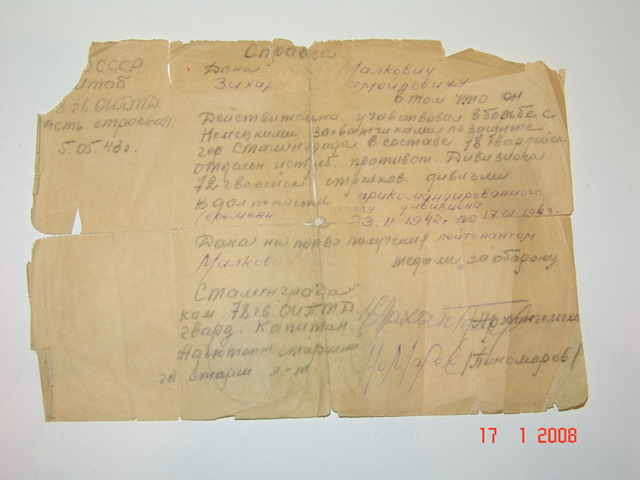 Справка
СССР
Штаб
78 гв. ОИПТД
часть строевая.
5.05.43 г.
Дана Малкович
Захар
в том что он
Действительно участвовал в борьбе с
Немецкими захватчиками по защите
гор Сталинграда в составе 78 гвардейск
отдельн. истреб. противот. Дивизиона
72 гвардейск стрелков. дивизии
в должности прикомандированного
дивизиона
(времени 1942 г по 17.01.1943 г.
Дана на право получения лейтенантом
Малкович медали за оборону
Сталинграда"
ком 78 гв. ОИПТД
гвард. Капитан.
Адъютант старший
гв. старш л-т
Пономарев
17 1 2008